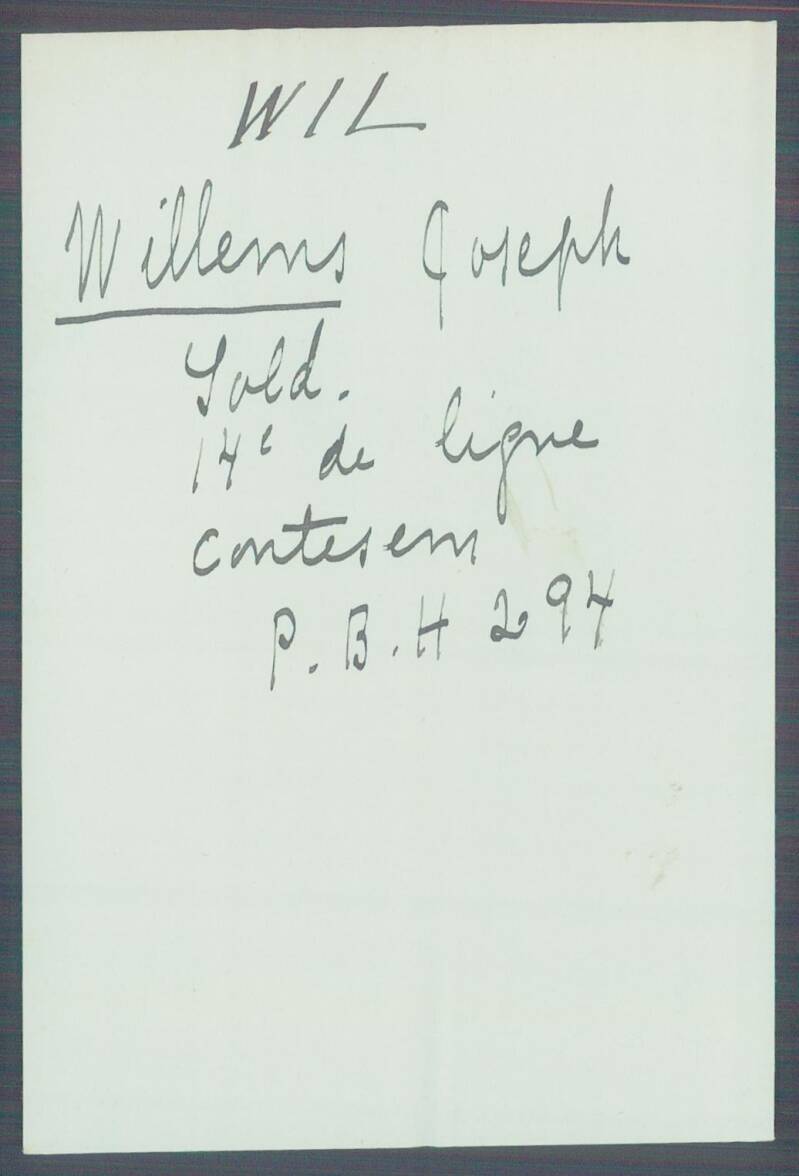 WIL
Willems Joseph
Sold.
14e de ligne
contesem
P.B.H 294